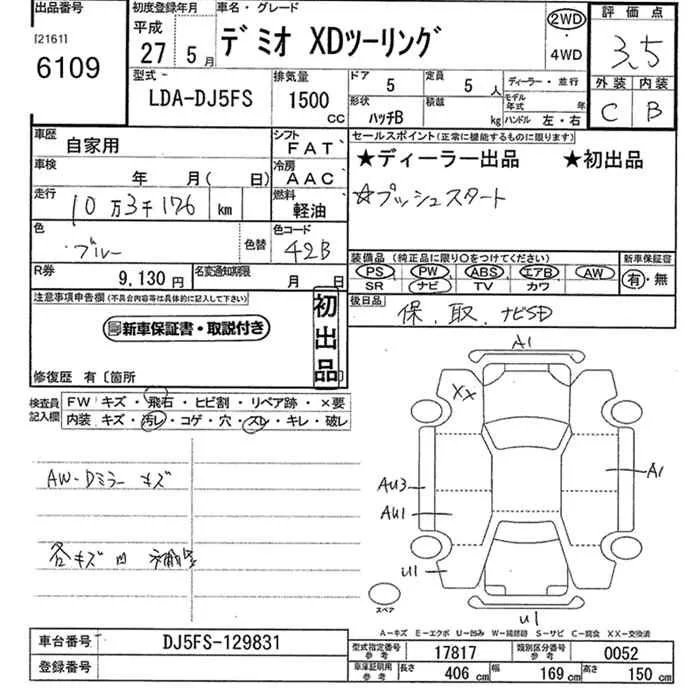 出品番号
[2161]
6109
初度登録年月
平成
27 5月
車名・グレード
デミオ XDツーリング
2WD
・
4WD
評価点
3.5
外装 内装
C B
型式
LDA-DJ5FS
排気量
1500
CC
ドア
5
定員
5 人
ディーラー・並行
形状
ハッチB
積載
kg
モデル年式
年
ハンドル 左・右
車歴
自家用
シフト
FAT
車検
年 月( 日)
冷房
AAC
走行
10万3千176 km
燃料
軽油
色
ブルー
色替
色コード
42B
R券
9,130円
名変通知期限
月 日
セールスポイント(正常に機能するものに限ります)
★ディーラー出品 ★初出品
☆プッシュスタート
装備品(純正品に限り○をつけてください)
PS PW ABS エアB AW
SR ナビ TV カワ
新車保証書
有・無
後日品
保、取、ナビSD
注意事項申告欄(不具合内容等は具体的に記入して下さい)
新車保証書・取説付き
初出品
修復歴 有〔箇所 〕
検査員記入欄
FW キズ・飛石・ヒビ割・リペア跡・×要
内装 キズ・汚レ・コゲ・穴・スレ・キレ・破レ
AW・Dミラー キズ
各キズ凹
A1
XX
A1
AU3
AU1
U1
U1
スペア
A－キズ E－エクボ U－凹み W－補修跡 S－サビ C－腐食 XX－交換済
車台番号
DJ5FS-129831
登録番号
型式指定番号
参考
17817
類別区分番号
参考
0052
車庫証明用
参考
長さ 406 cm
幅 169 cm
高さ 150 cm